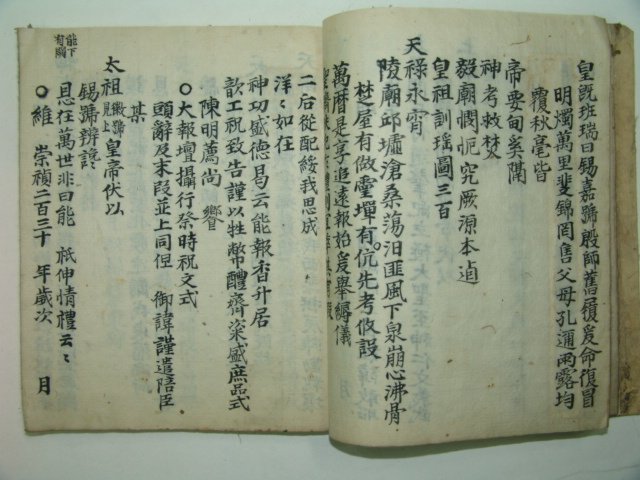 皇既班瑞曰錫嘉號殷師舊履爰命復冒
明燭萬里斐錦罔售父母孔邇雨露均
覆秋毫皆
帝要甸奚閡
神考救焚
毅廟憫恤究厥源本逌
皇祖訓瑤圖三百
天祿永宵
陵廟邱墟滄桑蕩汨匪風下泉崩心沸骨
楚屋有做壇有伉先考攸設
萬曆是享追遠報始爰舉縟儀
二后從配綏我思成
洋〻如在
神功盛德曷云能報香升居
歆工祝致告謹以牲幣醴齊粢盛庶品式
陳明薦尚 饗
○大報壇攝行祭時祝文式
頭辭及末段並上同但 御諱謹遣陪臣
某
太祖徽號見上皇帝伏以
錫號辨疆
恩在萬世非曰能 祇伸情禮云〻
能下有闕
○維 崇禎二百三十 年歲次 月